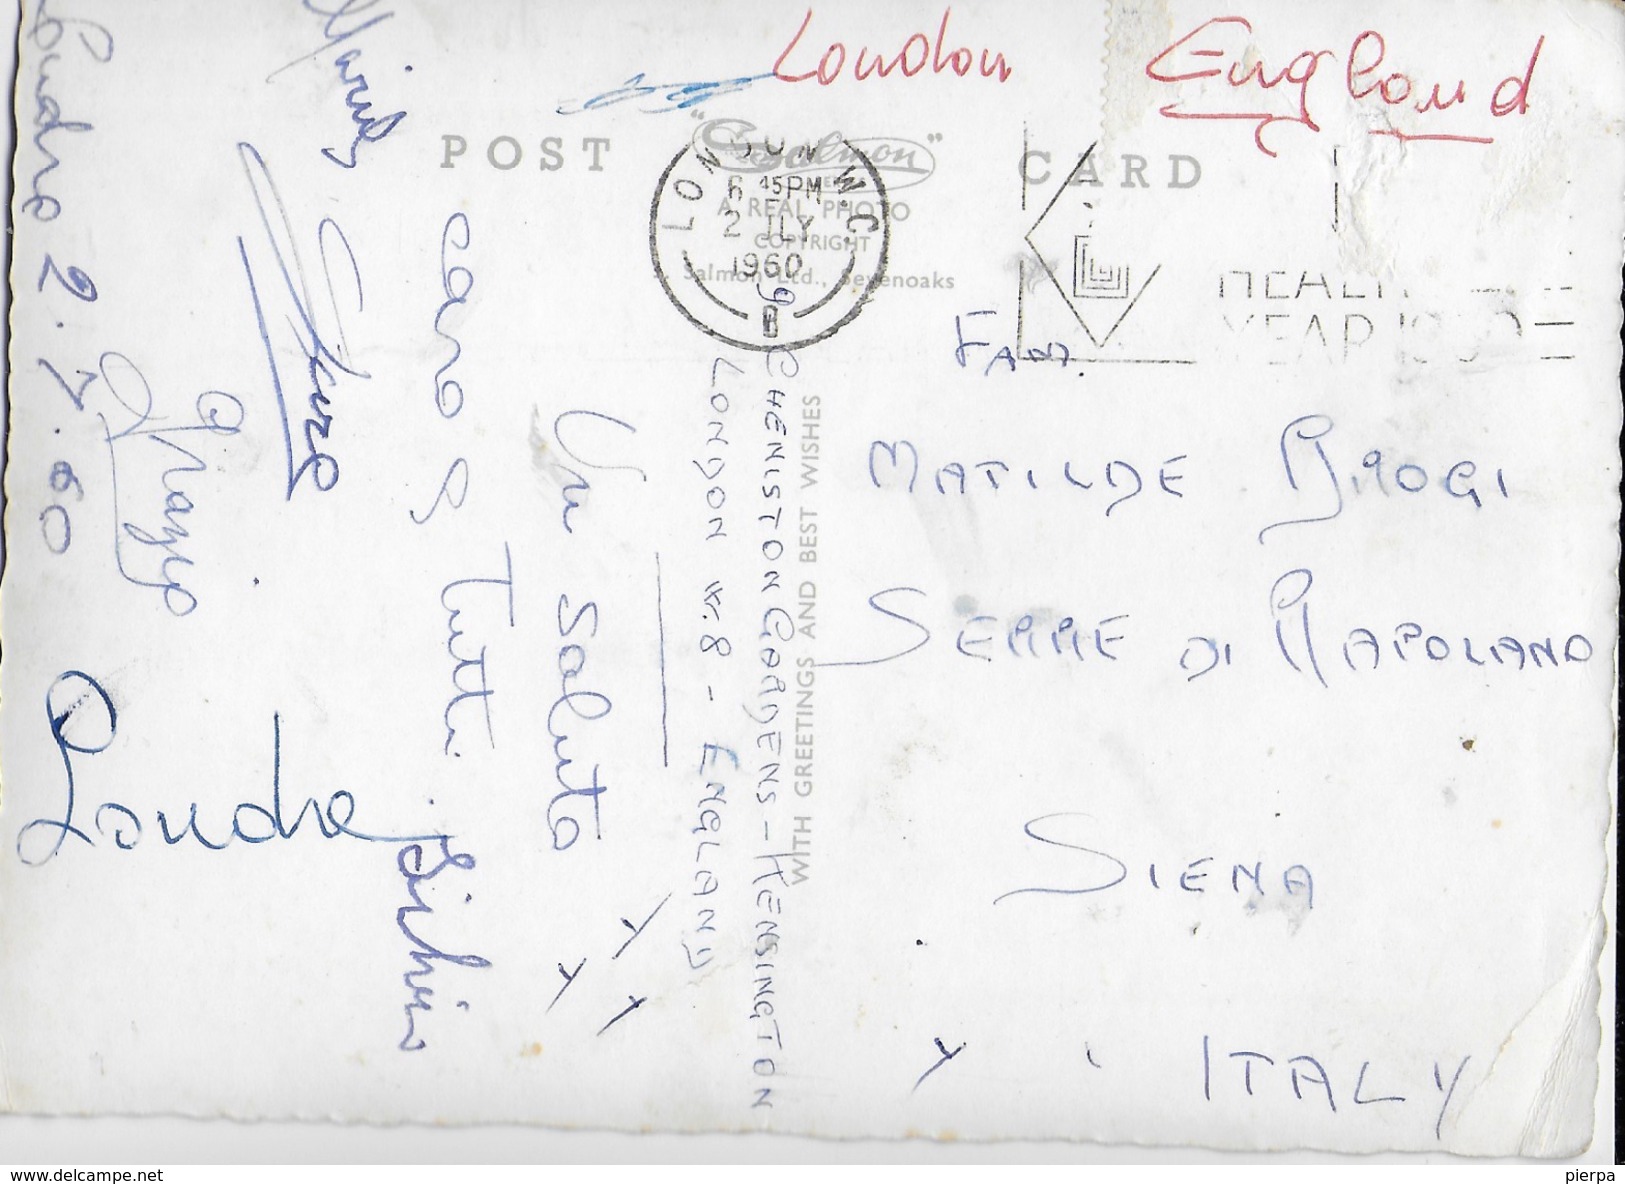 London England
POST CARD
"Salmon"
SERIES
A REAL PHOTO
COPYRIGHT
J. Salmon Ltd., Sevenoaks
LONDON W.C.
6 45PM
2 JLY
1960
B
YEAR
WITH GREETINGS AND BEST WISHES
Londra 2.7.60
Caro G
Tutti.
Un Saluto
Londra
CHENISTON GARDENS - KENSINGTON
LONDON W.8 - ENGLAND
FAM.
MATILDE BROGI
SERRE DI RAPOLANO
SIENA
ITALY
pierpa